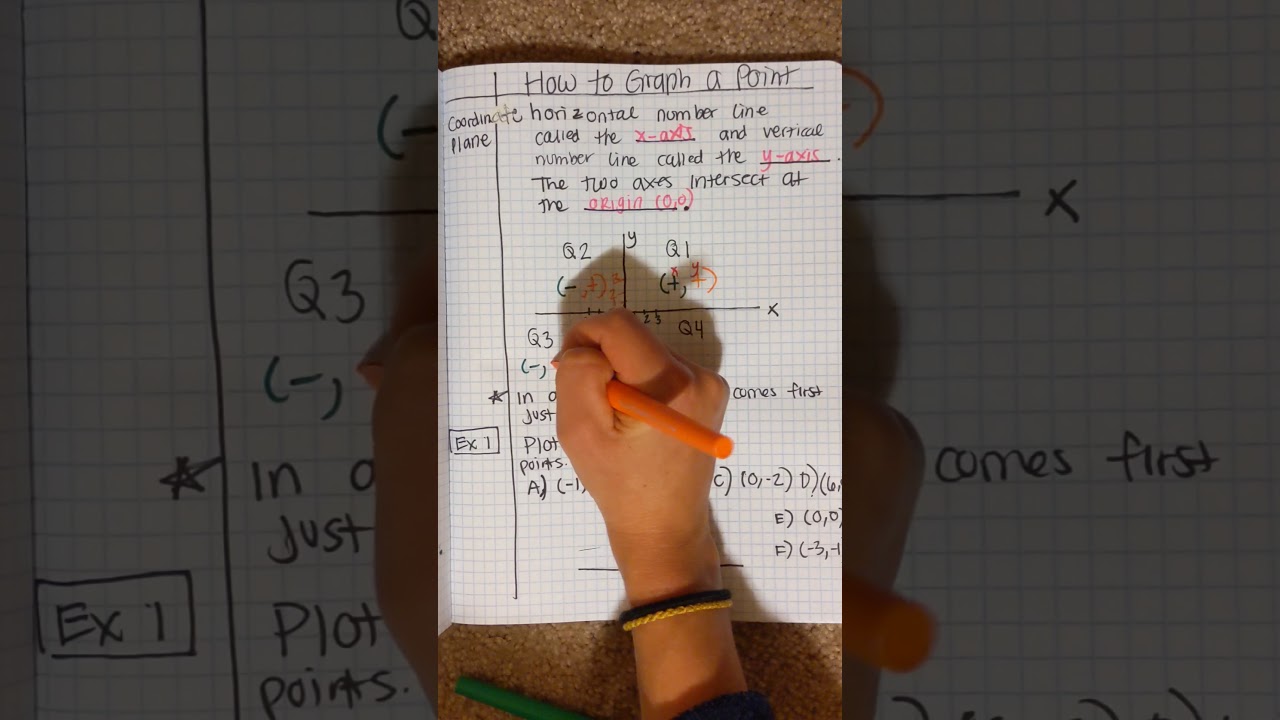 How to Graph a Point
Coordinate plane
horizontal number line
called the x-axis and vertical
number line called the y-axis.
The two axes intersect at
the origin (0,0).
y
Q2 Q1
x y
(-,+) (+,+)
x
2 3
Q3 Q4
(-,
In comes first
just
Ex 1
Plot
points.
A) (-1, C) (0,-2) D) (6,
E) (0,0)
F) (-3,-1